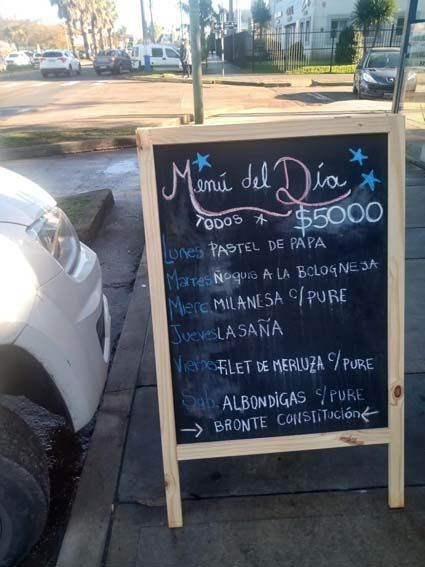 Menú del Día
TODOS * $5000
Lunes PASTEL DE PAPA
Martes ÑOQUIS A LA BOLOGNESA
Mierc. MILANESA C/PURE
Jueves LASAÑA
Viernes FILET DE MERLUZA C/PURE
Sab. ALBONDIGAS C/PURE
→ BRONTE CONSTITUCIÓN ←